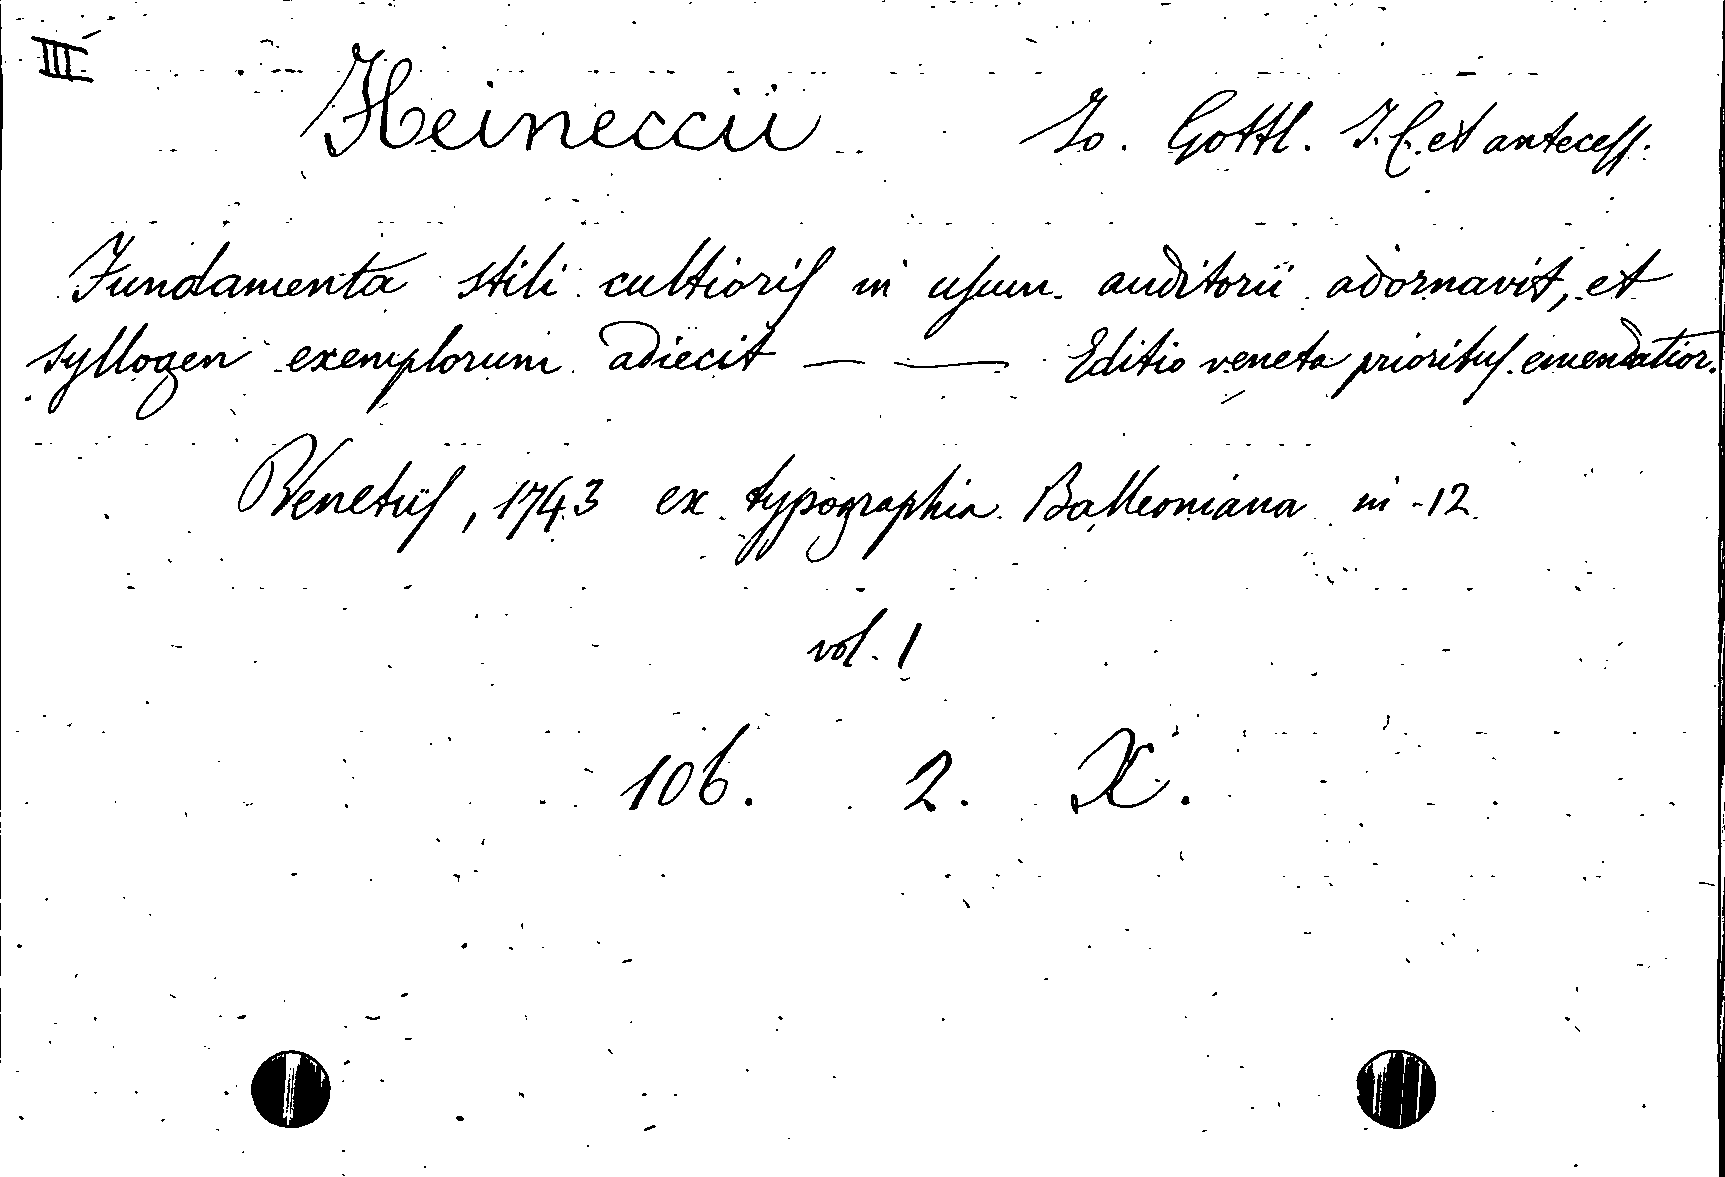 III
Heineccii Io. Gottl. I. C. et antecess.
Fundamenta stili cultioris in usum auditorii adornavit, et
syllogen exemplorum adiecit — — Editio veneta prioribus emendatior.
Venetiis, 1743 ex typographia Balleoniana in -12
vol. 1
106. 2. X.